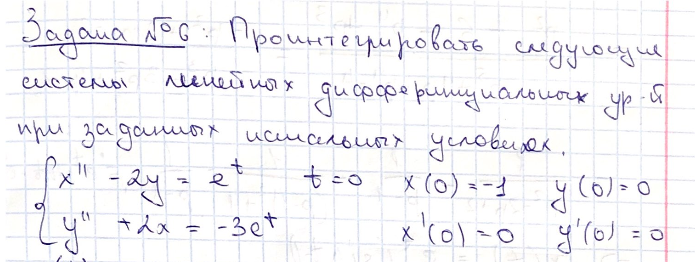 Задача №6: Проинтегрировать следующие
системы линейных дифференциальных ур-й
при заданных начальных условиях.
x'' - 2y = e^t t=0 x(0)=-1 y(0)=0
y'' + 2x = -3e^t x'(0)=0 y'(0)=0